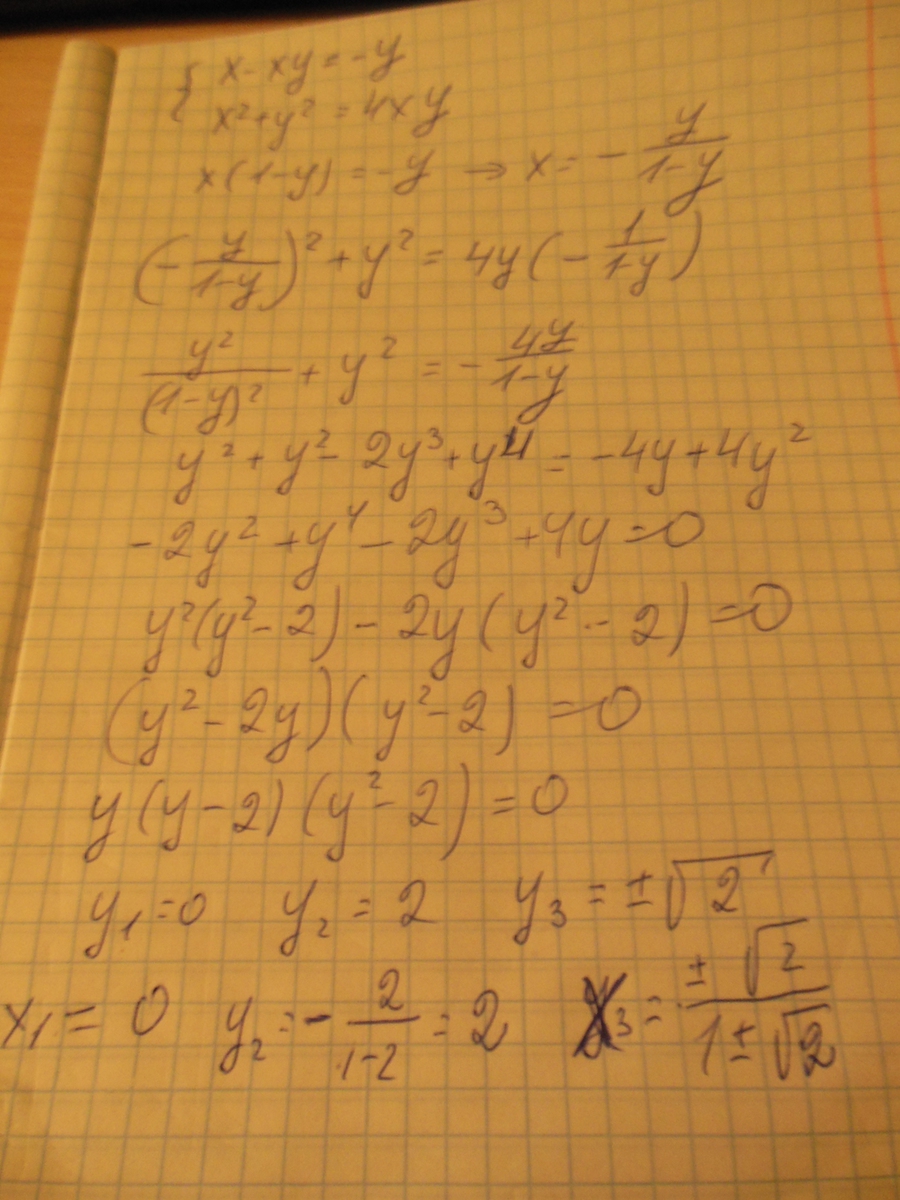 { x - xy = -y
{ x² + y² = 4xy
x(1-y) = -y → x = - y/(1-y)
(- y/(1-y))² + y² = 4y(- 1/(1-y))
y²/(1-y)² + y² = - 4y/(1-y)
y² + y² - 2y³ + y⁴ = -4y + 4y²
-2y² + y⁴ - 2y³ + 4y = 0
y²(y² - 2) - 2y(y² - 2) = 0
(y² - 2y)(y² - 2) = 0
y(y - 2)(y² - 2) = 0
y₁ = 0 y₂ = 2 y₃ = ±√2
x₁ = 0 y₂ = - 2/(1-2) = 2 x₃ = ±√2/(1±√2)